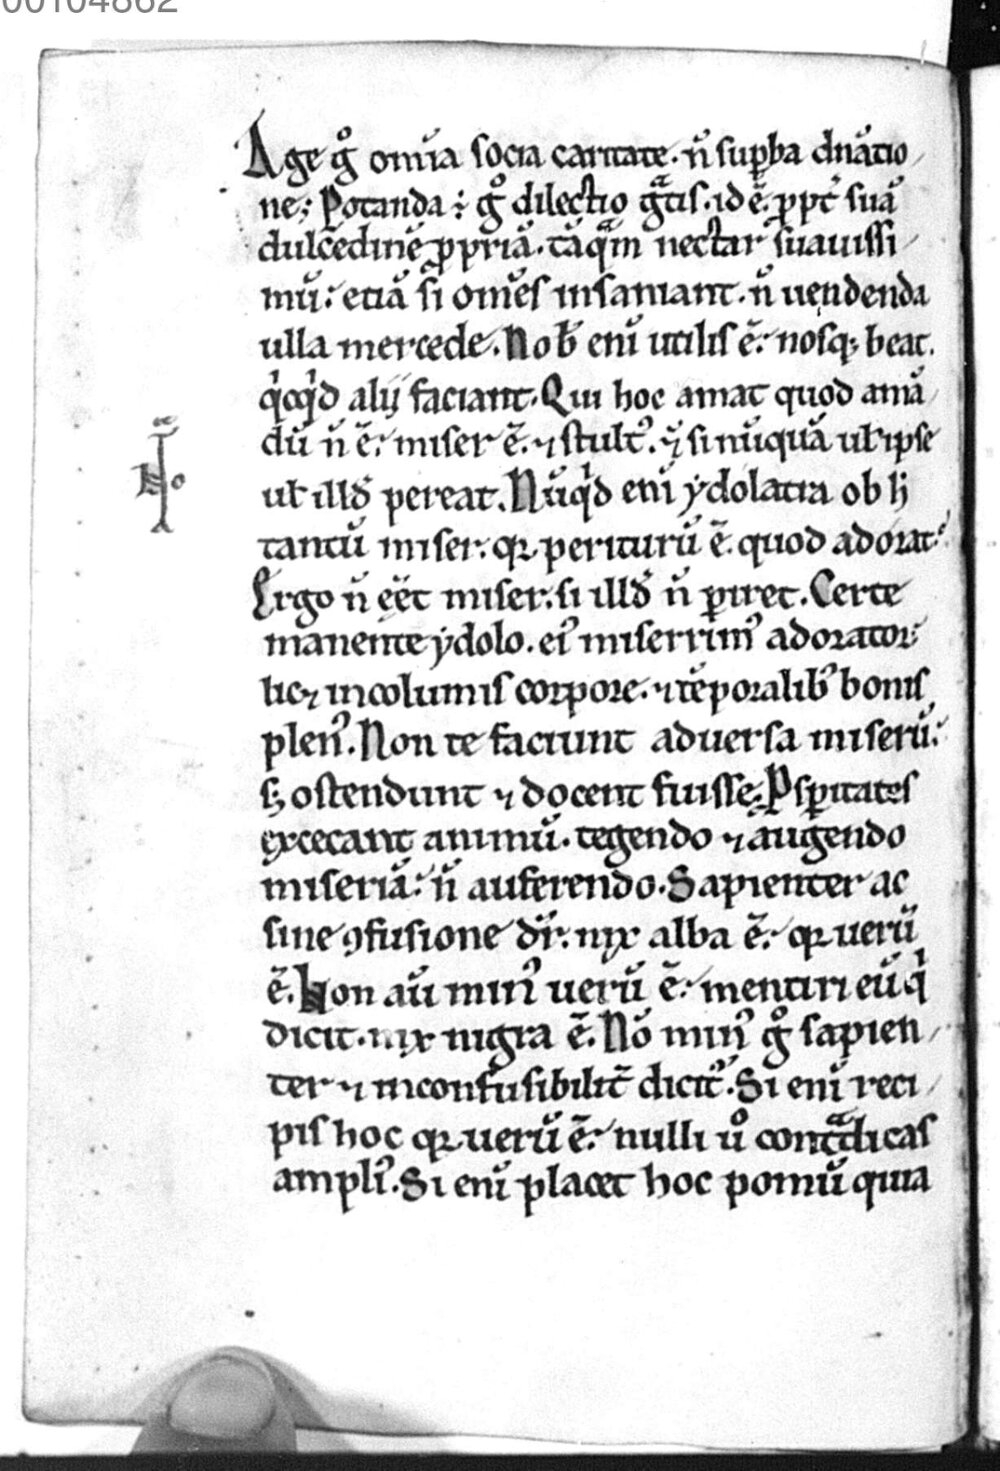 00104862
Age gͦ om̅ia socia caritate. n̅ sup̱ba dn̅atio
ne; Potanda ÷ gͦ dilectio gᵃtis. id ē. ꝓpt̄ suā
dulcedinē ꝓpriā. tāqᵃm nectar suauissi
mū: etiā si om̅es insaniant. n̅ uendenda
ulla mercede. Nob̅ eni̅ utilis ē: nosq; beat.
qͥcqͥd alij faciant. Qui hoc amat quod amā
dū n̅ ē: miser ē. ⁊ stultꝰ. ⁊ si nūquā ul̅ ipse
ul̅ illđ pereat. Nūqͥd eni̅ ydolatra ob h̅
tantū miser. qꝛ periturū ē. quod adorat:
Ergo n̅ eēt miser. si illđ n̅ ꝑiret. Certe
manente ydolo. eiꝰ miserrimꝰ adorator:
licꝫ incolumis corpore. ⁊ tēporalibꝰ bonis
plenꝰ. Non te faciunt aduersa miserū:
sꝫ ostendunt ⁊ docent fuisse. Psꝑitates
excecant animū. tegendo ⁊ augendo
miseriā: n̅ auferendo. Sapienter ac
sine ꝯfusione dr̅. nix alba ē: qꝛ uerū
ē. Non au̅ minꝰ uerū ē: mentiri eū qͥ
dicit. nix nigra ē. Nō minꝰ gͦ sapien
ter ⁊ inconfusibilit̅ dicit᷑. Si eni̅ reci
pis hoc qꝛ uerū ē: nulli uͦ contᵃdicas
ampliꝰ. Si eni̅ placet hoc pomū quia